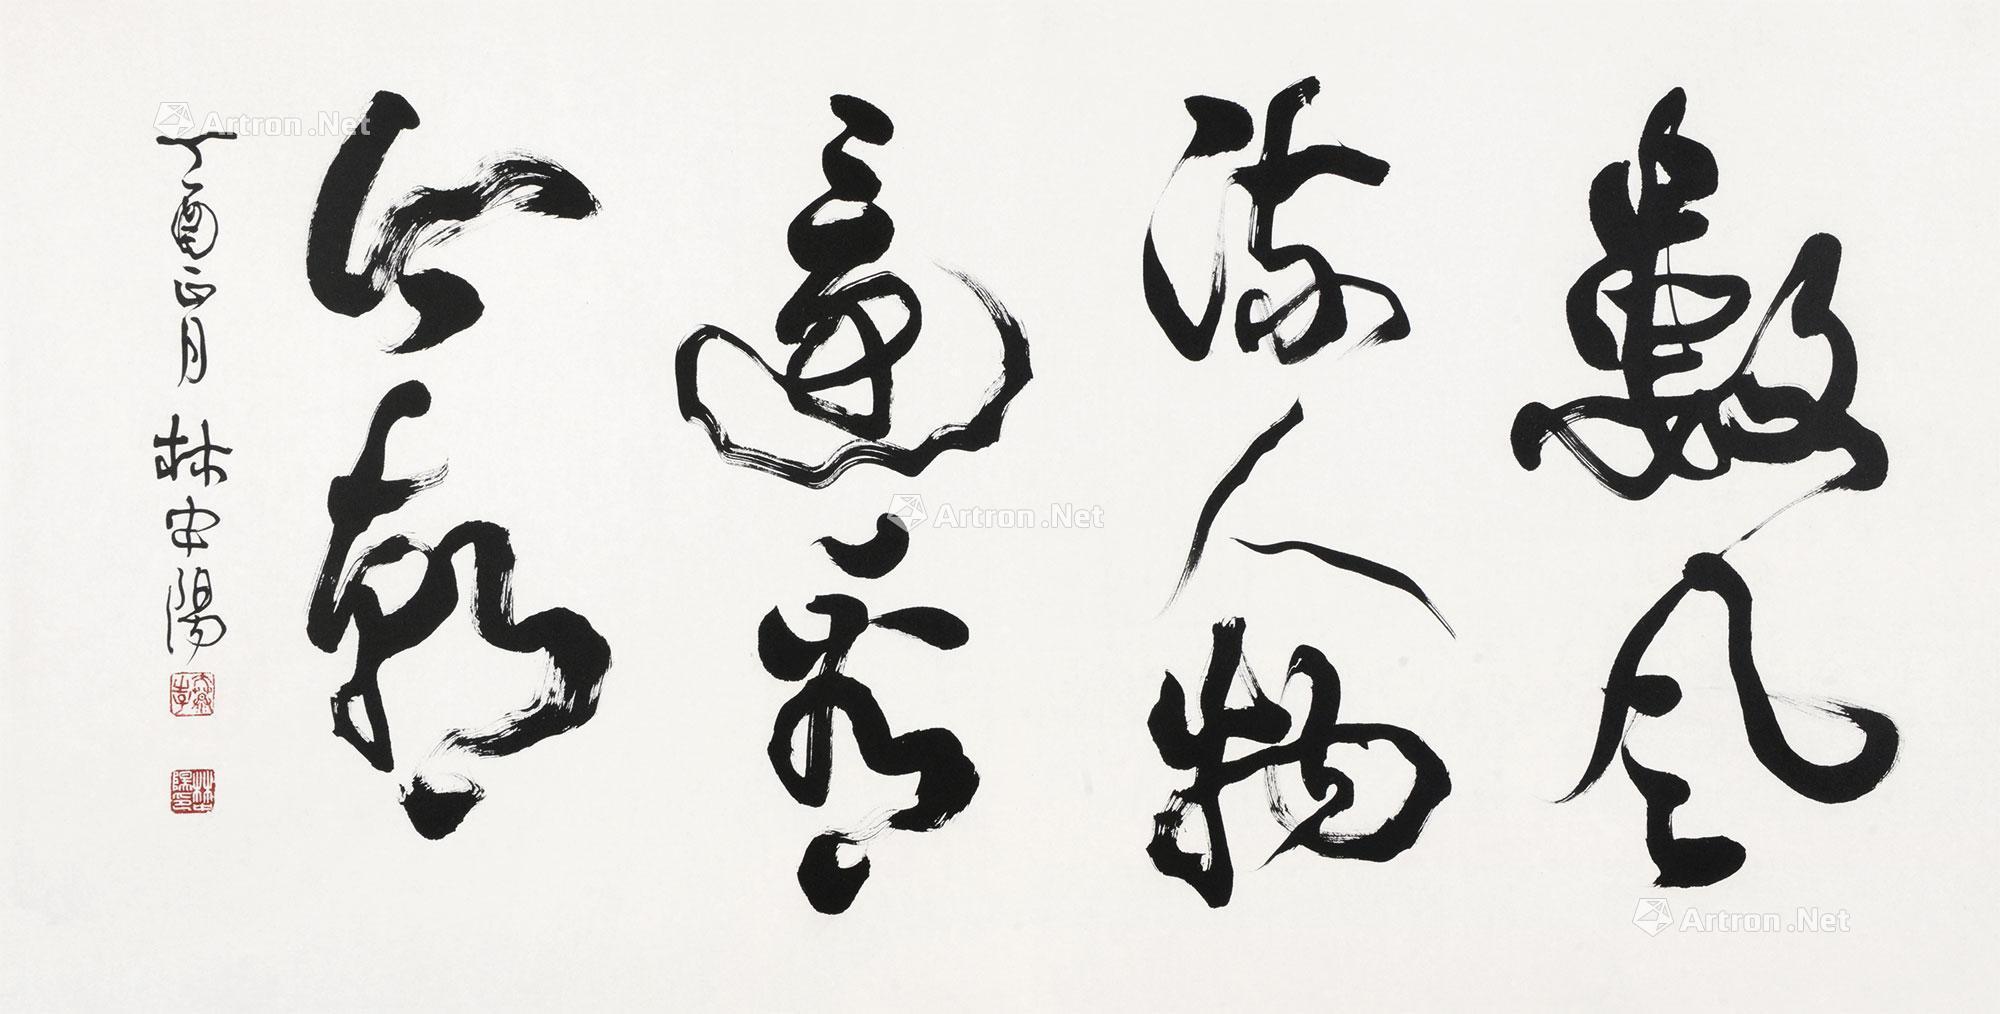 數風
流人物
還看
今朝
丁酉正月 林中陽
Artron.Net
Artron.Net
Artron.Net